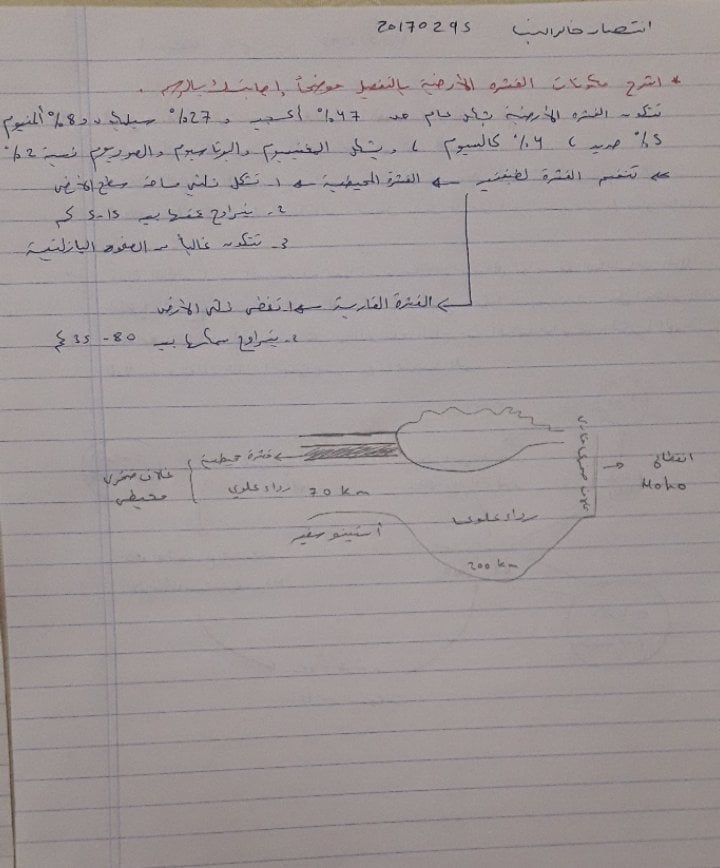 انتصار خالد 20170295
* اشرح مكونات القشره الأرضية بالتفصيل موضحاً إجابتك بالرسم .
تتكون القشره الأرضية بشكل عام من 47% أكسجين و 27% سيليكا و 8% ألمنيوم
5% حديد ، 4% كالسيوم ، ويشكل المغنسيوم والبوتاسيوم والصوديوم نسبة 2%
تنقسم القشرة لطبقتين ← القشرة المحيطية ← 1. تشكل ثلثي مساحة سطح الأرض
2. يتراوح عمقها بين 5-15 كم
3. تتكون غالباً من الصخور البازلتية
← القشرة القارية ← 1. تغطي ثلث الأرض
2. يتراوح سمكها بين 35-80 كم
غلاف صخري قاري
انقطاع
Moho
قشرة محيطية
غلاف صخري
محيطي
رداء علوي 70 km
رداء علوي
أستينوسفير
200 km